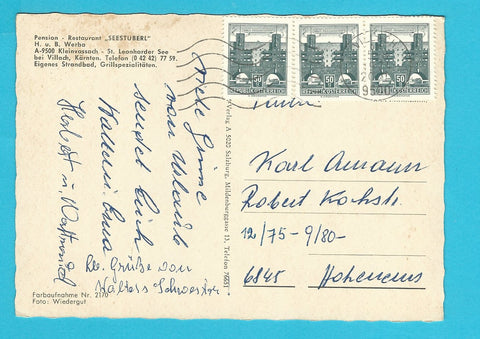 Pension - Restaurant „SEESTÜBERL"
H. u. B. Werba
A-9500 Kleinvassach - St. Leonharder See
bei Villach, Kärnten. Telefon (0 42 42) 77 59.
Eigenes Strandbad, Grillspezialitäten.
Viele Grüße
vom Urlaub
sendet Euch
Herbert u. Waltraud
Lb. Grüße von
Walters Schwester
Farbaufnahme Nr. 2170
Foto: Wiedergut
Verlag A 5020 Salzburg, Mildenburggasse 13, Telefon 76551
50
REPUBLIK ÖSTERREICH
50
REPUBLIK ÖSTERREICH
50
REPUBLIK ÖSTERREICH
Familie
Karl Amann
Robert Kochstr.
12/75-9/80-
6845 Hohenems